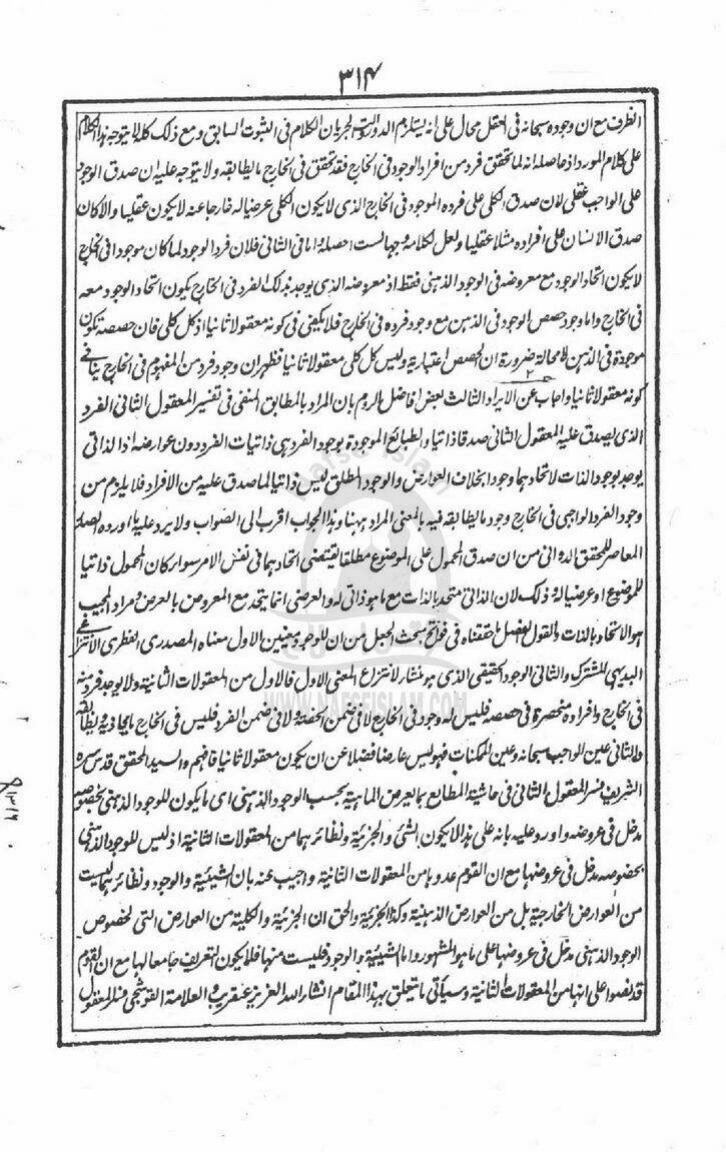 ٣١٤
الظرف مع ان وجوده سبحانه فى العقل محال على انه يستلزم الدور او التس لجريان الكلام فى الثبوت السابق ومع ذلك كله لا يتوجه هذا الكلام
على كلام المورد اذ حاصله انه لما تحقق فرد من افراد الوجود فى الخارج فقد تحقق فى الخارج ما يطابقه ولا يتوجه عليه ان صدق الوجود
على الواجب عقلى لان صدق الكلى على فرده الموجود فى الخارج الذى لا يكون الكلى عرضيا له خارجا عنه لا يكون عقليا والا لكان
صدق الانسان على افراده مثلا عقليا ولعل لكلامه وجها لست احصله واما فى الثانى فلان فرد الوجود لما كان موجودا فى الخارج
لا يكون اتحاد الوجود مع معروضه فى الوجود الذهنى فقط اذ معروضه الذى يوجد بذلك الفرد فى الخارج يكون اتحاد الوجود معه
فى الخارج واما وجود حصص الوجود فى الذهن مع وجود فرده فى الخارج فلا يكفى فى كونه معقولا ثانيا اذ كل كلى فان حصصه تكون
موجودة فى الذهن لا محالة ضرورة ان الحصص اعتبارية وليس كل كلى معقولا ثانيا فظهر ان وجود فرد من المفهوم فى الخارج ينافى
كونه معقولا ثانيا واجاب عن الايراد الثالث بعض افاضل الروم بان المراد بالمطابق المنفى فى تفسير المعقول الثانى الفرد
الذى يصدق عليه المعقول الثانى صدقا ذاتيا والطبائع الموجودة بوجود الفرد هى ذاتيات الفرد دون عوارضه اذ الذاتى
يوجد بوجود الذات لاتحادهما وجودا بخلاف العوارض والوجود المطلق ليس ذاتيا لما صدق عليه من الافراد فلا يلزم من
وجود الفرد الواجبى فى الخارج وجود ما يطابقه فيه بالمعنى المراد ههنا وهذا الجواب اقرب الى الصواب ولا يرد عليه ما اورده الصدر
المعاصر للمحقق الدوانى من ان صدق المحمول على الموضوع مطلقا يقتضى اتحادهما فى نفس الامر سواء كان المحمول ذاتيا
للموضوع او عرضيا له وذلك لان الذاتى متحد بالذات مع ما هو ذاتى له والعرضى انما يتحد مع المعروض بالعرض ومراد المجيب
هو الاتحاد بالذات والقول الفصل ما حققناه فى فواتح مبحث الجعل من ان للوجود معنيين الاول معناه المصدرى الفطرى الانتزاعى
البديهى المشترك والثانى الوجود الحقيقى الذى هو منشأ لانتزاع المعنى الاول فالاول من المعقولات الثانية ولا يوجد فرد منه
فى الخارج وافراده منحصرة فى حصصه فليس له وجود فى الخارج لا فى ضمن الحصة ولا فى ضمن الفرد فليس فى الخارج ما يحاذيه ويطابقه
والثانى عين للواجب سبحانه وعين الممكنات فهو ليس عارضا فضلا عن ان يكون معقولا ثانيا فافهم والسيد المحقق قدس سره
الشريف فسر المعقول الثانى فى حاشية المطالع بما يعرض الماهية بحسب الوجود الذهنى اى ما يكون للوجود الذهنى بخصوصه
مدخل فى عروضه واورد عليه بانه على هذا لا يكون الشئ والجزئية ونظائرهما من المعقولات الثانية اذ ليس للوجود الذهنى
بخصوصه مدخل فى عروضها مع ان القوم عدوها من المعقولات الثانية واجيب عنه بان الشيئية والوجود ونظائرهما ليست
من العوارض الخارجية بل من العوارض الذهنية وكذا الجزئية والحق ان الجزئية والكلية من العوارض التى لخصوص
الوجود الذهنى مدخل فى عروضها على ما هو المشهور واما الشيئية والوجود فليست منها فلا يكون التعريف جامعا لها مع ان القوم
قد نصوا على انها من المعقولات الثانية وسيأتى ما يتعلق بهذا المقام انشاء الله العزيز عنقريب والعلامة القوشجى فسر المعقول
WWW.NAFSEISLAM.COM